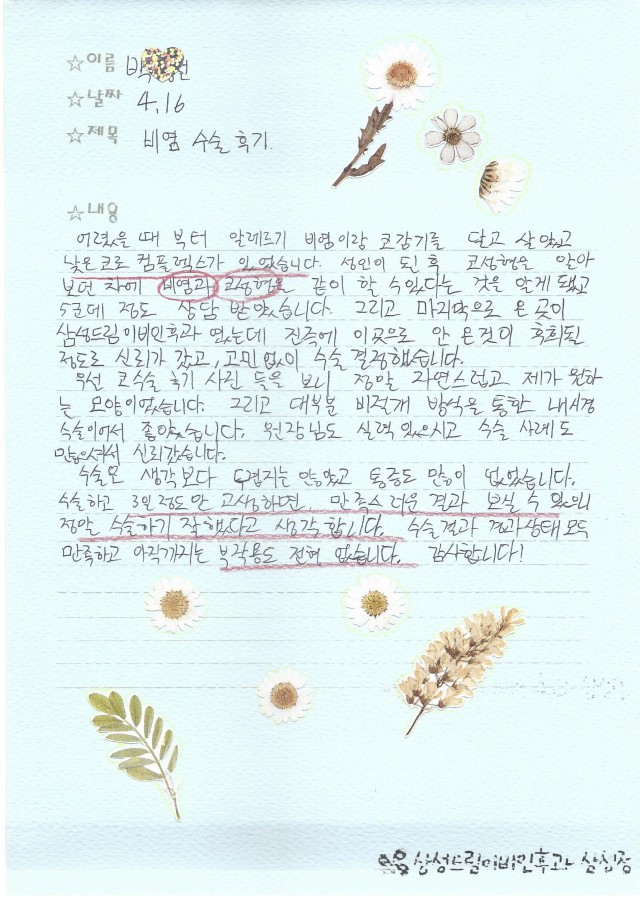 ☆이름 박 선
☆날짜 4.16
☆제목 비염 수술 후기.
☆내용
어렸을 때 부터 알레르기 비염이랑 코감기를 달고 살았고
낮은 코로 컴플렉스가 있었습니다. 성인이 된 후 코성형을 알아
보던 차에 비염과 코성형을 같이 할 수 있다는 것을 알게 됐고
5군데 정도 상담 받았습니다. 그리고 마지막으로 온 곳이
삼성드림이비인후과 였는데 진즉에 이곳으로 안 온것이 후회될
정도로 신뢰가 갔고, 고민없이 수술 결정했습니다.
우선 코수술 후기 사진 들을 보니 정말 자연스럽고 제가 원하
는 모양이었습니다. 그리고 대부분 비절개 방식을 통한 내시경
수술이어서 좋았습니다. 원장님도 실력 있으시고 수술 사례도
많으셔서 신뢰갔습니다.
수술도 생각보다 무섭지는 않았고 통증도 많이 없었습니다.
수술하고 3일 정도만 고생하면, 만족스러운 결과 보실 수 있으니
정말 수술하기 잘했다고 생각합니다. 수술결과 경과상태 모두
만족하고 아직까지는 부작용도 전혀 없습니다. 감사합니다!
삼성드림이비인후과 삼칩정